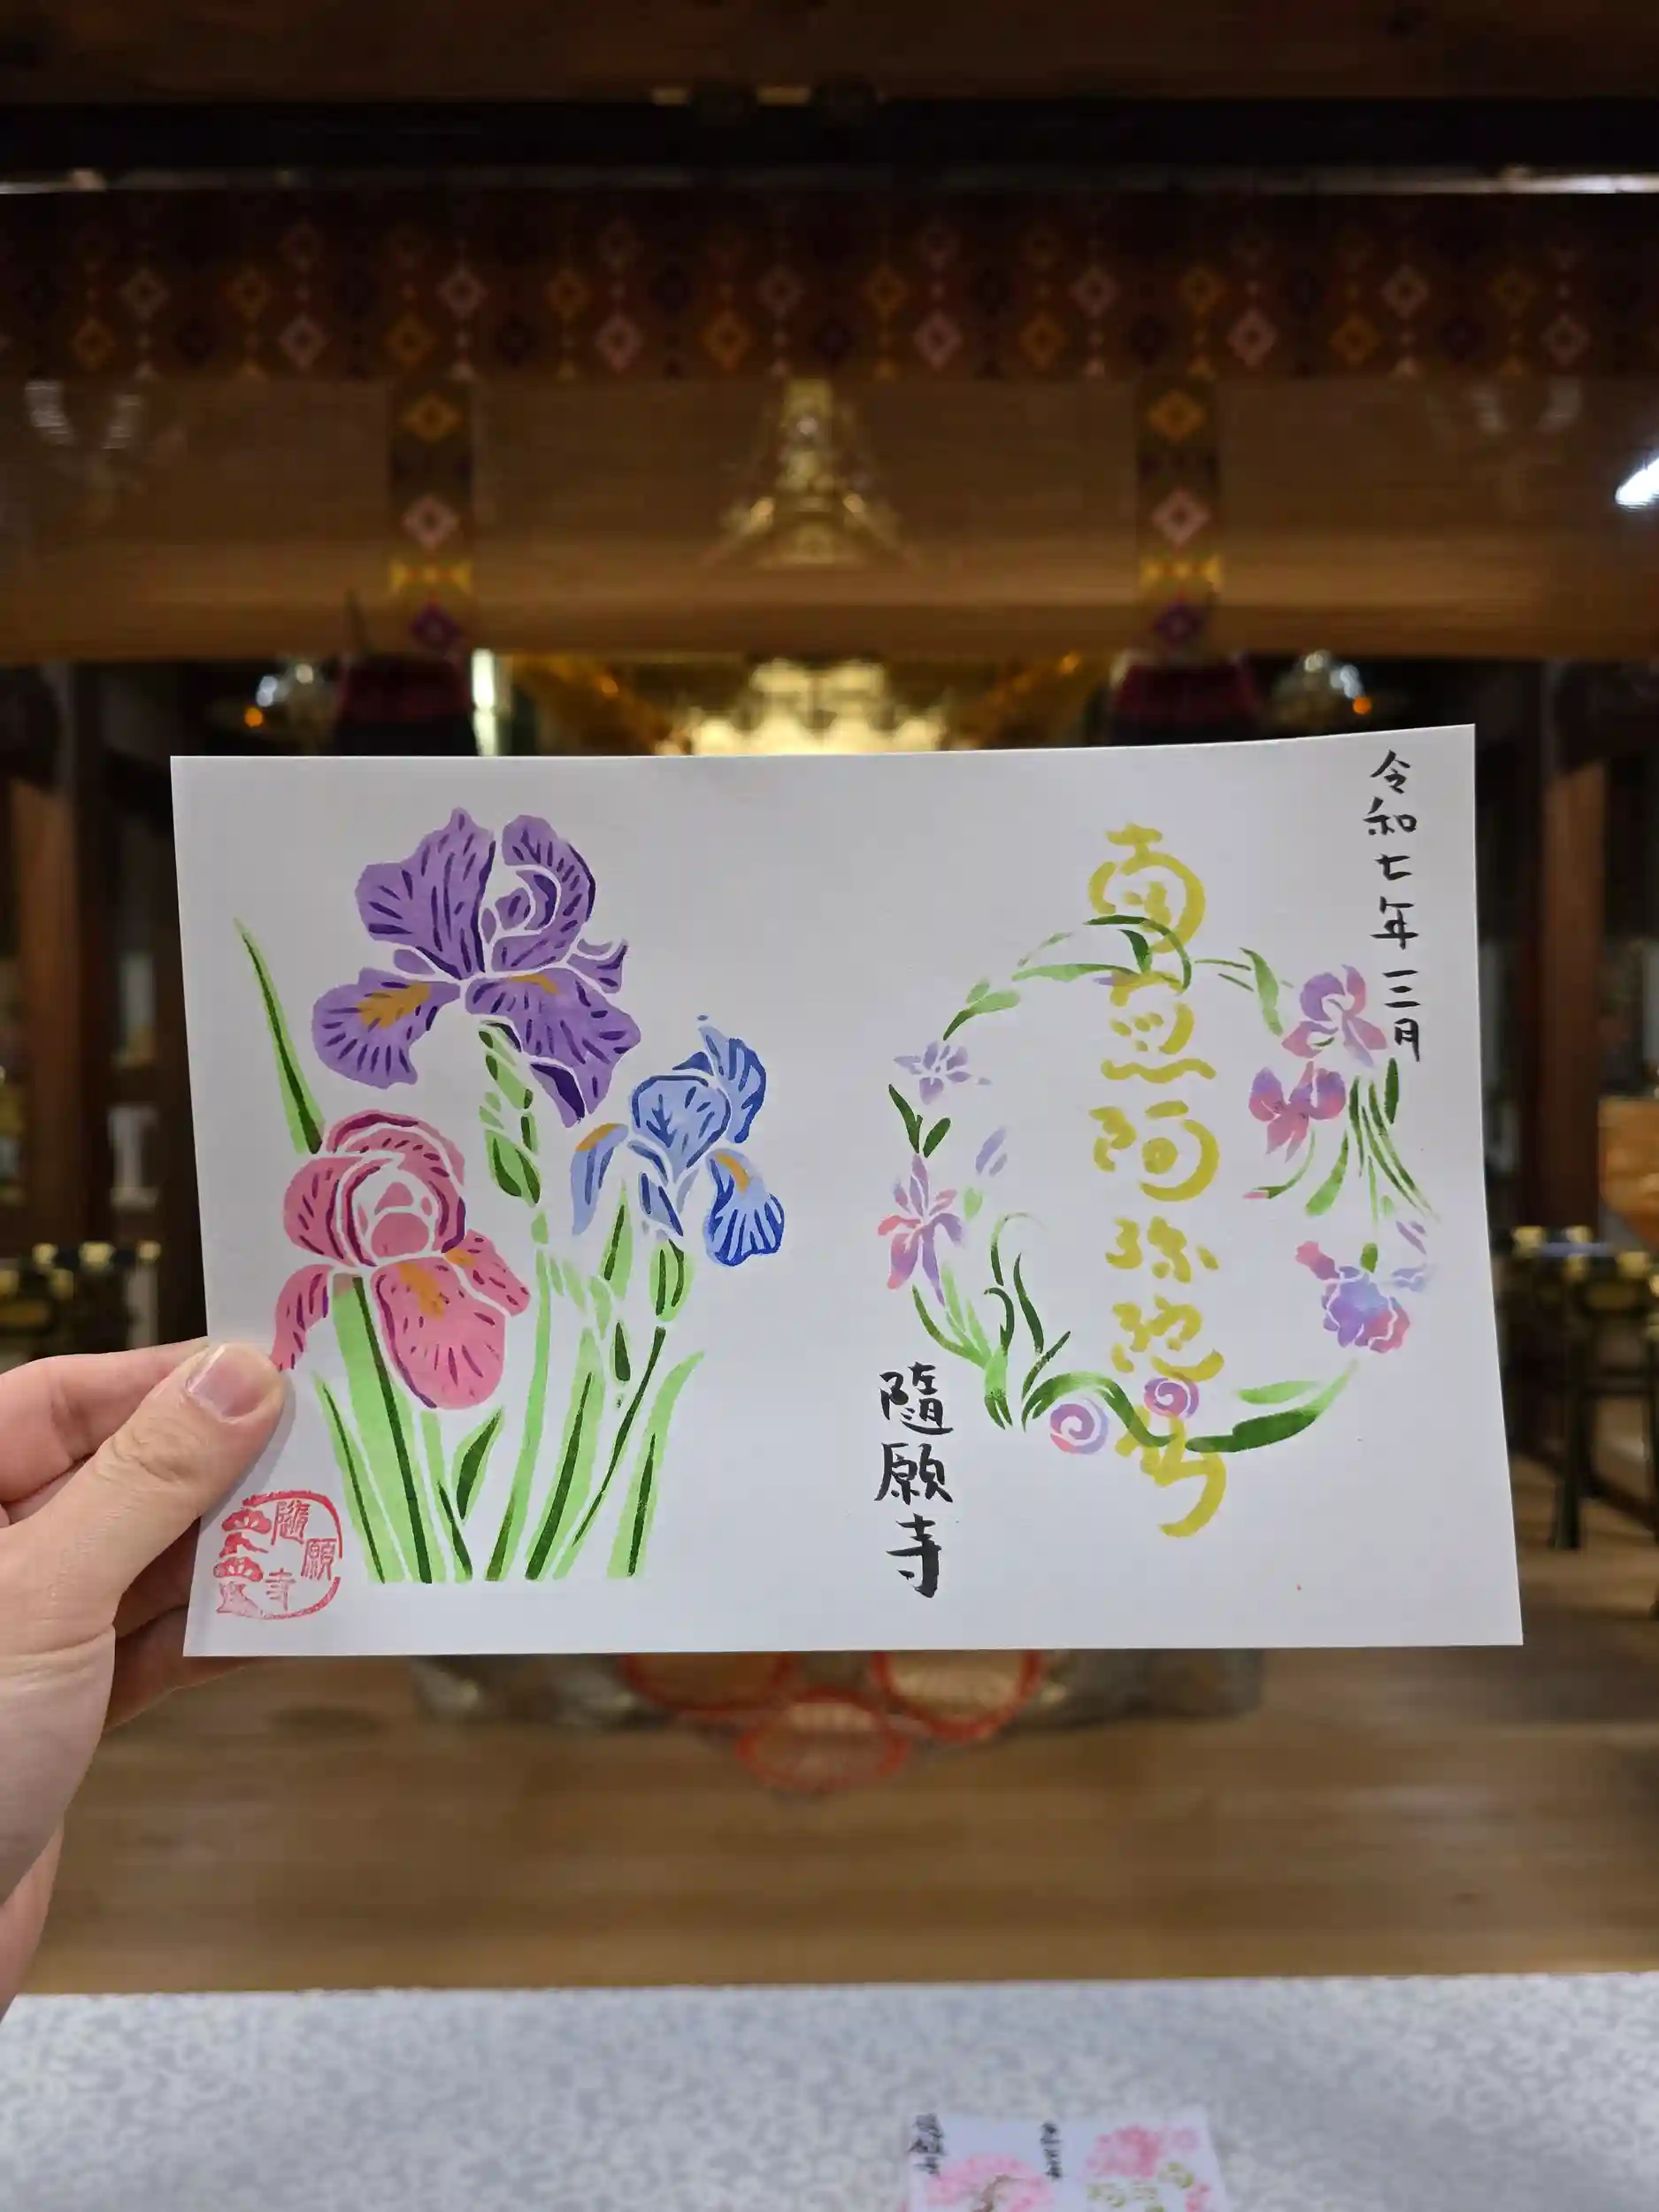 令和七年三月
南無阿弥陀仏
隨願寺
隨願寺